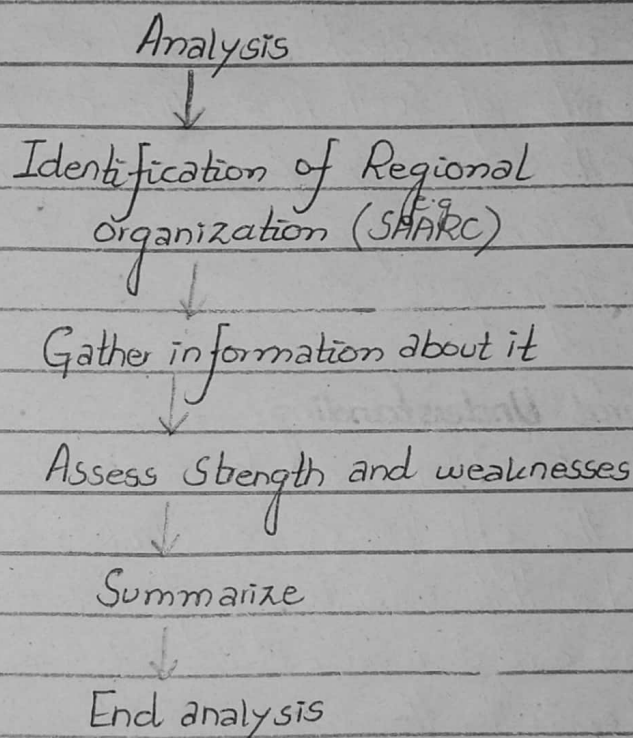 Analysis
Identification of Regional
e.g
organization (SAARC)
Gather information about it
Assess strength and weaknesses
Summarize
End analysis